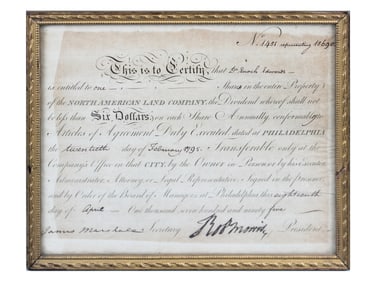 No. 1491 representing
This is to Certify, that Dr. Enoch Edwards
is entitled to one Share in the entire Property
of the NORTH AMERICAN LAND COMPANY; the Dividend whereof shall not
be less than Six Dollars on each Share Annually, conformably to
Articles of Agreement Duly Executed dated at PHILADELPHIA
the twentieth day of February 1795. Transferable only at the
Company's Office in that CITY, by the Owner in Person or by his Executor
Administrator, Attorney or Legal Representative. Signed in the presence
and by Order of the Board of Managers at Philadelphia this eighteenth
day of April One thousand seven hundred and ninety five
James Marshall Secretary Rob Morris President